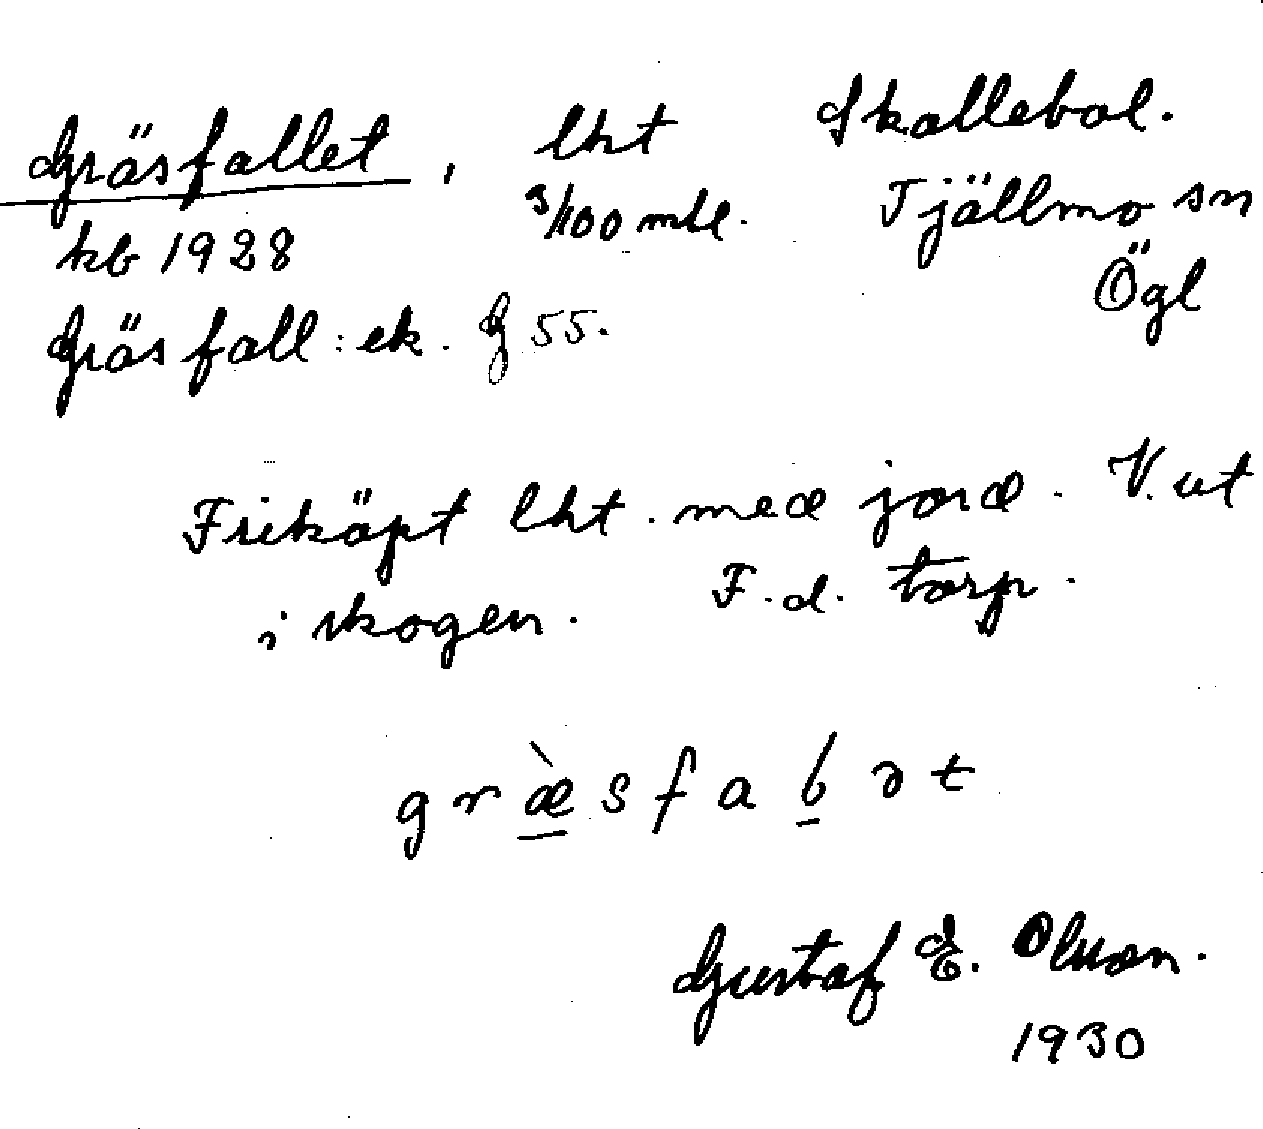 Gräsfallet, lht Skallebol.
kb 1928 3/100 mtl. Tjällmo sn
Ögl
Gräsfall: ek. G 55.
Friköpt lht. med jord. V. ut
i skogen. F.d. torp.
græ̀sfaḷət
Gustaf E. Olsson.
1930